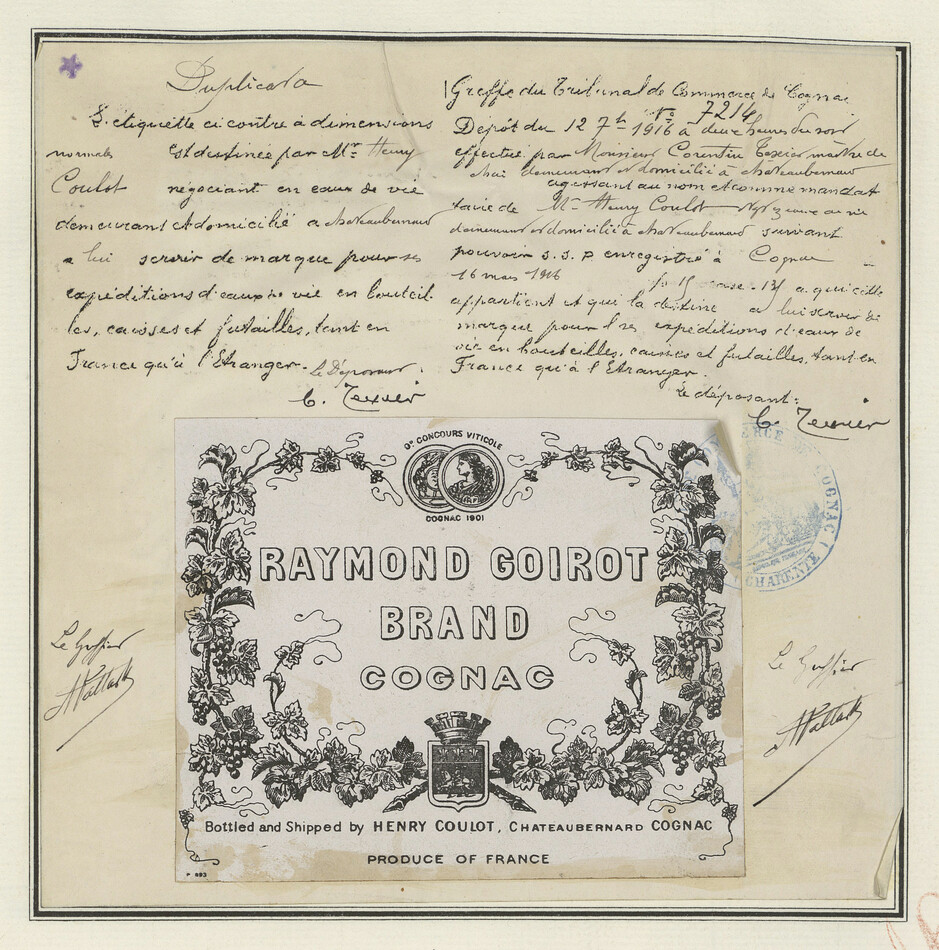 Duplicata
L'étiquette ci contre à dimensions
normales est destinée par Mr Henry
Coulot négociant en eaux de vie
demeurant et domicilié a chateaubernard
a lui servir de marque pour ses
expéditions d'eaux de vie en bouteil-
les, caisses et futailles, tant en
France qu'à l'Etranger. Le Déposant:
C. Texier
Greffe du Tribunal de Commerce de Cognac
No 7214
Dépôt du 12 7bre 1916 à deux heures du soir
effectué par Monsieur Corentin Texier maître de
chai demeurant et domicilié à chateaubernard
agissant au nom et comme mandat
taire de Mr Henry Coulot Negt eaux de vie
demeurant et domicilié à chateaubernard suivant
pouvoir s.s.p enregistré à Cognac
16 mars 1916 a qui elle
appartient et qui la destine a lui servir de
marque pour les expéditions d'eaux de
vie en bouteilles, caisses et futailles, tant en
France qu'à l'Etranger.
Le déposant:
C. Texier
Gd CONCOURS VITICOLE
COGNAC 1901
RAYMOND GOIROT
BRAND
COGNAC
Bottled and Shipped by HENRY COULOT, CHATEAUBERNARD COGNAC
PRODUCE OF FRANCE
P 893
COGNAC
CHARENTE
Le Greffier
Le Greffier